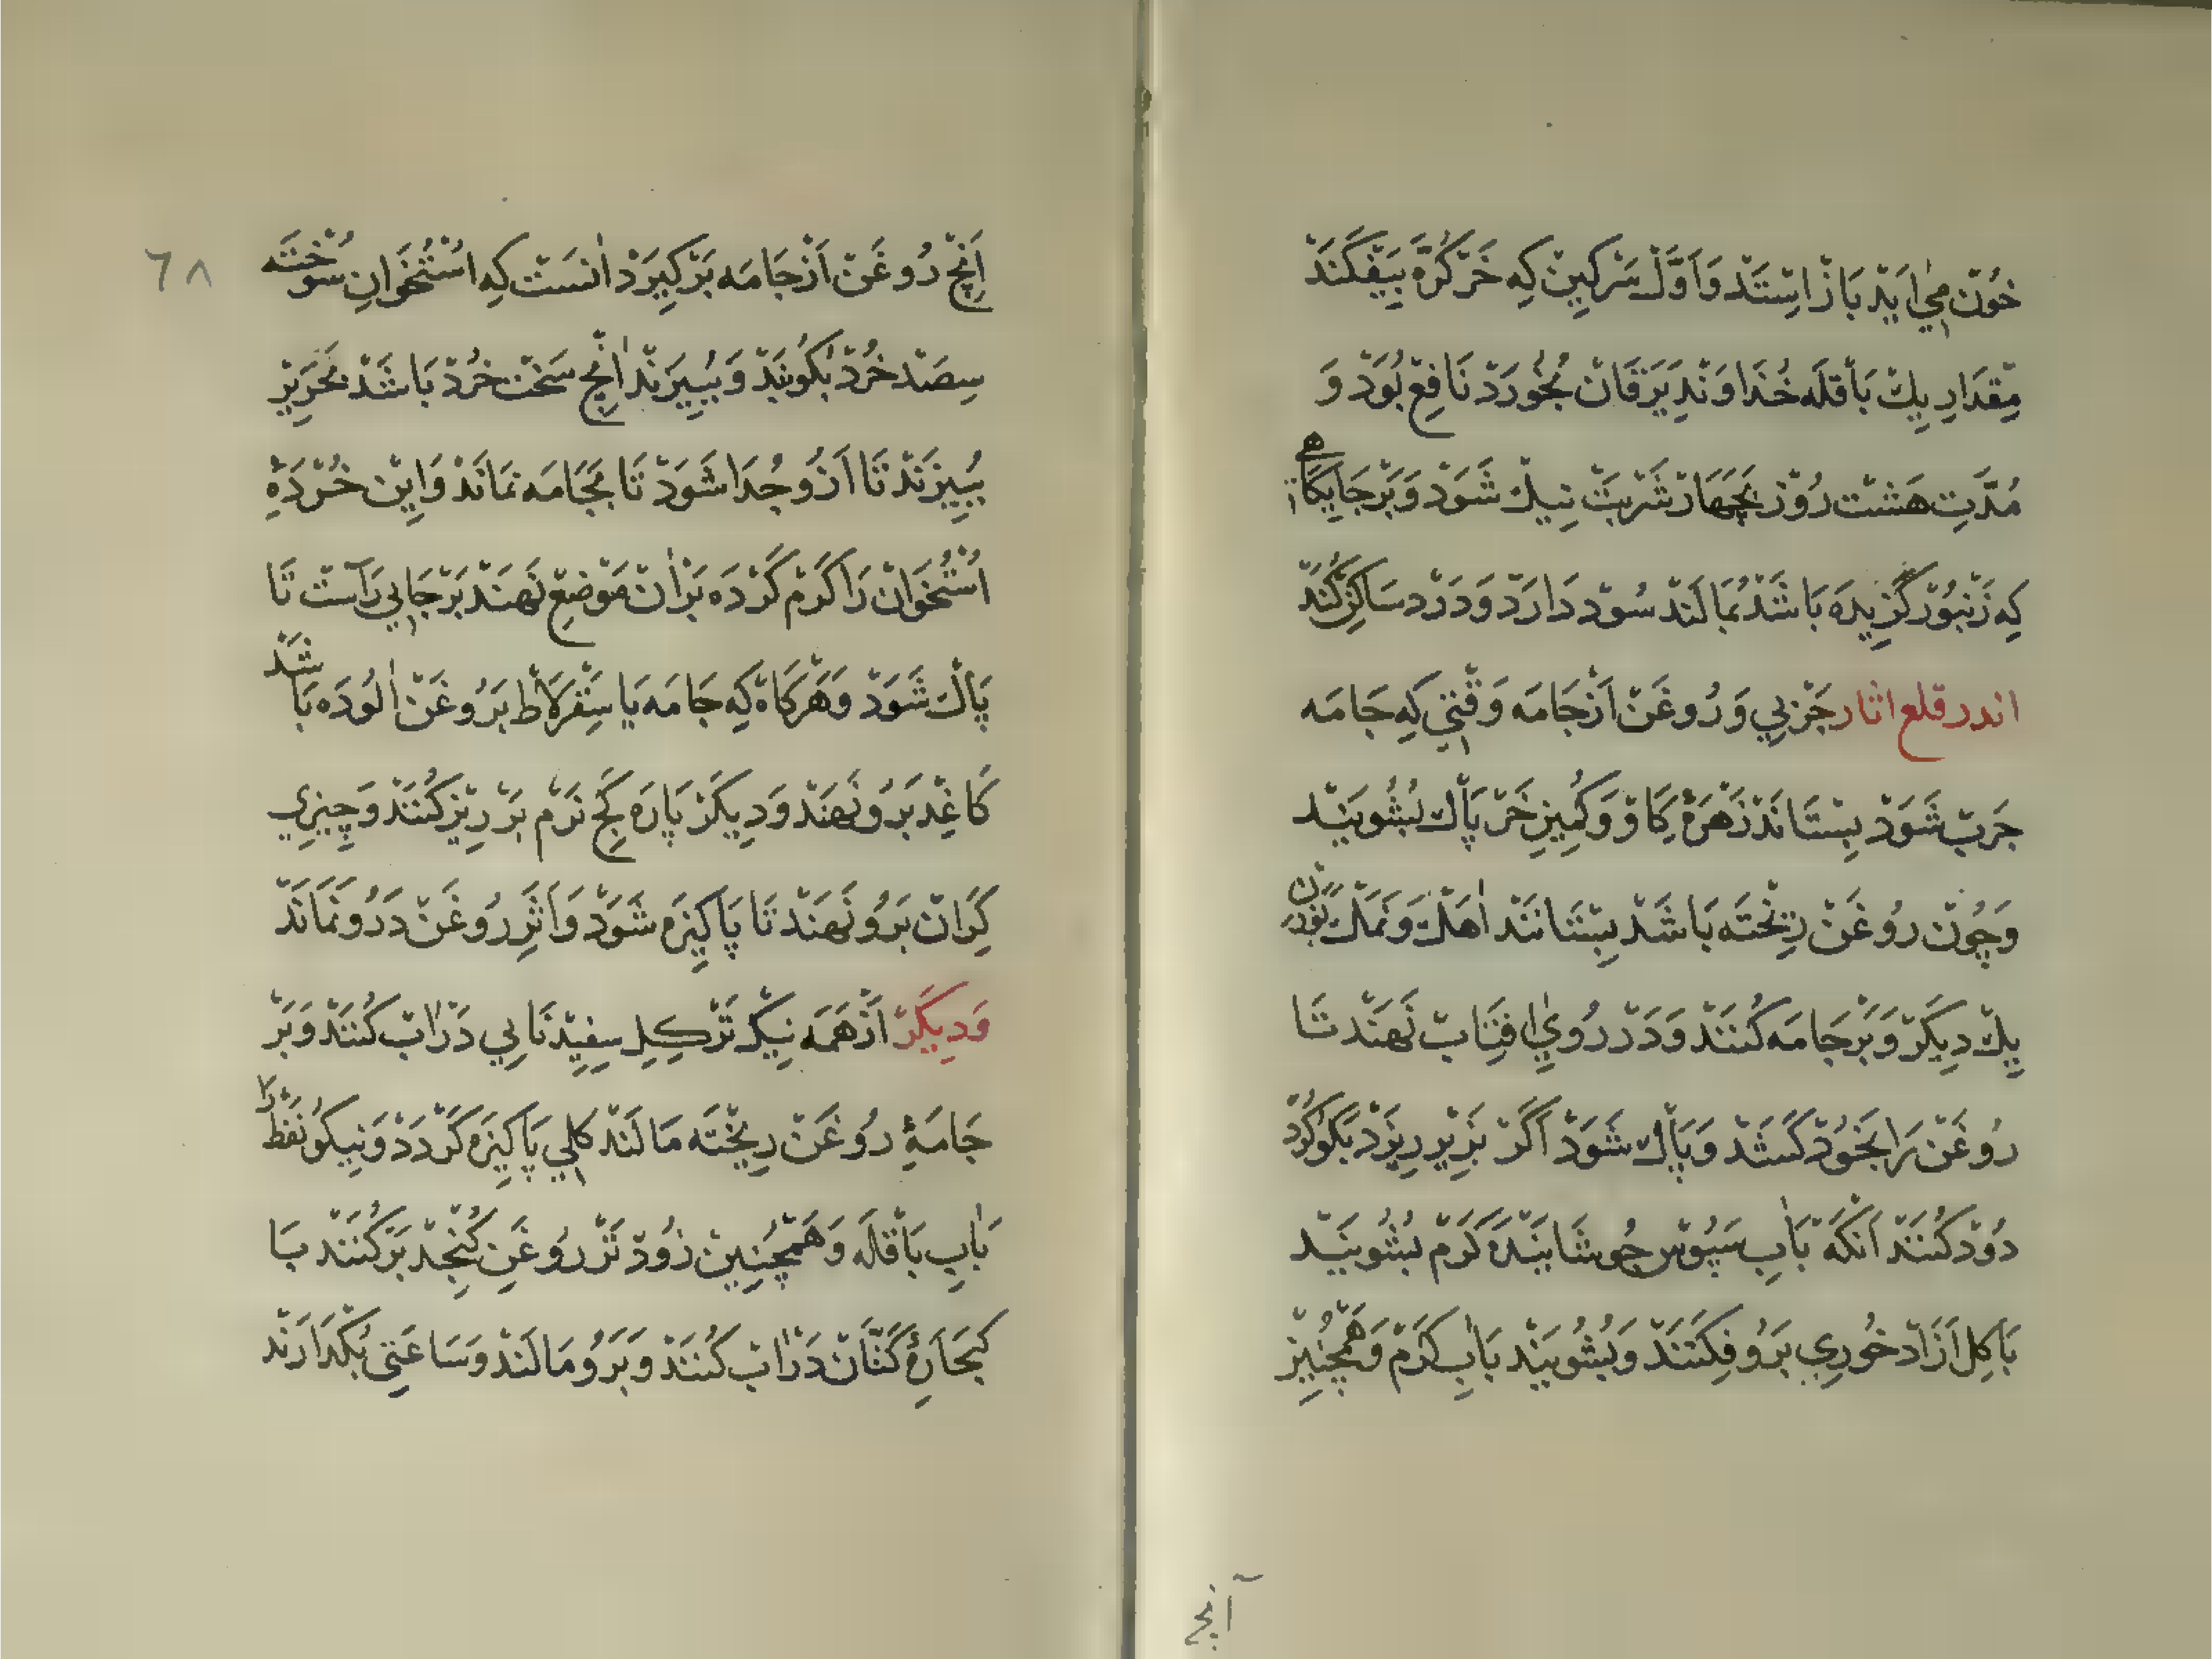 خُوْن مِي اٰيَدْ بَازْ اِسْتَدْ وَ اَوَّلْ سَرْكِيِنْ كِه خَرْ كُرَّه بِيَفْكَنَدْ
مِقْدَارِ يِكْ بَاقْلَه خُدَاوَنْدِ يَرَقَانْ بُخُورَدْ نَافِعْ بُوَدْ وَ
مُدَّتِ هَشْتْ رُوْز بَچَهَارْ شَرْبَتْ نِيكْ شَوَدْ وَ بَرْ جَايِكَاهِي
كِه زَنْبُوْر كَزِيدَه بَاشَدْ بُمَالَنْد سُوْد دَارَدْ وَ دَرْد سَاكِنْ كُنَدْ
اندر قلع اثار چَرْبِي وَ رُوغَنْ اَزْ جَامَه وَقْتِي كِه جَامَه
چَرْبْ شَوَدْ بِسْتَانَدْ زَهْرَهٔ كَاوْ وَ كُمِيزِ خَرْ پَاكْ بُشُويَنْد
وَ چُوْن رُوغَنْ رِيخْتَه بَاشَدْ بِسْتَانَنْد اٰهَكْ وَ نَمَكْ بَوَزْنِ
يِكْ دِيكَرْ وَ بَرْ جَامَه كُنَنْد وَ دَرْ رُويِ اٰفْتَابْ نَهَنْد تَا
رُوغَنْ رَا بَخُوْدْ كَشَدْ وَ پَاكْ شَوَدْ اَكَرْ بَزِيرِ زِيَرْد بَكُوكُرْد
دُوْدْ كُنَنْد اَنْكَهْ بَاٰبِ سَپُوْسِ جُوشَانِيْدَه كَرَمْ بُشُويَنْد
بَا كِل اٰزَادْ خُورِي بَرُو فِكَنَنْدْ وَ بُشُويَنْد بَاٰبِ كَرَمْ وَ هَمْچُنِينْ
اٰنچ
٦٨
اٰنِچْ رُوغَنْ اَزْ جَامَه بَرْ كِيرَدْ اٰنَسْتْ كِه اُسْتُخْوَانِ سُوخْتَه
سِصَدْ خُرْدْ بُكُوبَنْد وَ بُبِيزَنْد اٰنِچْ سَخْتْ خُرْد بَاشَدْ بَحَرِيرْ
بُبِيزَنْدْ تَا اَزُو جُدَا شَوَدْ تَا بَجَامَه نَمَانَدْ وَ اِينْ خُرْدَهٔ
اُسْتُخْوَانْ رَا كَرْم كَرْدَه بَرْ اٰنْ مَوْضِعْ نَهَنْد بَرْ جَايِي رَاسْت تَا
پَاكْ شَوَدْ وَ هَرْكَاهْ كِه جَامَه يَا سِقْرَلَاطْ بَرُوغَنْ اٰلُودَه بَاشَدْ
كَاغِدْ بَرُو نَهَنْد وَ دِيكَرْ پَارَه كَچِ نَرْم بَرْ رِيزْ كُنَنْدْ وَ چِيزِي
كِرَانْ بَرُو نَهَنْد تَا پَاكِيزَه شَوَدْ وَ اَثَرِ رُوغَنْ دَرُو نَمَانَدْ
وَ دِيكَرْ اَزْ هَمَه نِيكْ تَرْ كِلِ سِفِيدْ نَابِي دَرْ اٰبْ كُنَنْدْ وَ بَرْ
جَامَهٔ رُوغَنْ رِيخْتَه مَالَنْدْ كُلِّي پَاكِيزَه كَرْدَدْ وَ نِيكُو نَفْطْ رَا
بَاٰبِ بَاقْلَه وَ هَمْچُنِينْ زُودْ تَرْ رُوغَنِ كُنْجِدْ بَرْ كُنَنْد بَا
كُنْجَارَهٔ كَتَّانْ دَرْ اٰبْ كُنَنْد وَ بَرُو مَالَنْد وَ سَاعَتِي بُكْذَارَنْد